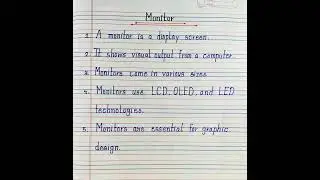 Monitor
1. A monitor is a display screen.
2. It shows visual output from a computer.
3. Monitors come in various sizes
4. Monitors use LCD, OLED, and LED
technologies.
5. Monitors are essential for graphic
design.